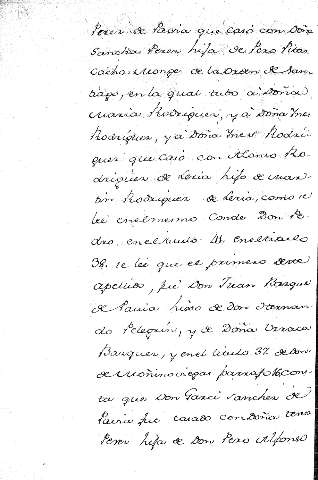 Perez de Pavia que casó con Doña
Sancha Perez hija de Pero
Monge de la Orden de San-
tiago, en la qual tubo á Doña
Maria Rodriguez, y á Doña Ines
Rodriguez, y á Doña Ines Rodri-
guez que casó con Alonso Ro-
driguez de hijo de Mar-
tin Rodriguez de como se
lee en el mesmo Conde Don Pe-
dro, en el titulo 41. en el titulo
38. se lee que el primero deste
apellido, fue Don Juan Bazquez
de Pavia hijo de Don Fernan-
do Pelegrin, y de Doña Urraca
Bazquez, y en el titulo 37. de Don
de parrafo cons-
ta que Don Garci Sanchez de
Pavia fue casado con Doña
Perez hija de Don Pero Alfonso